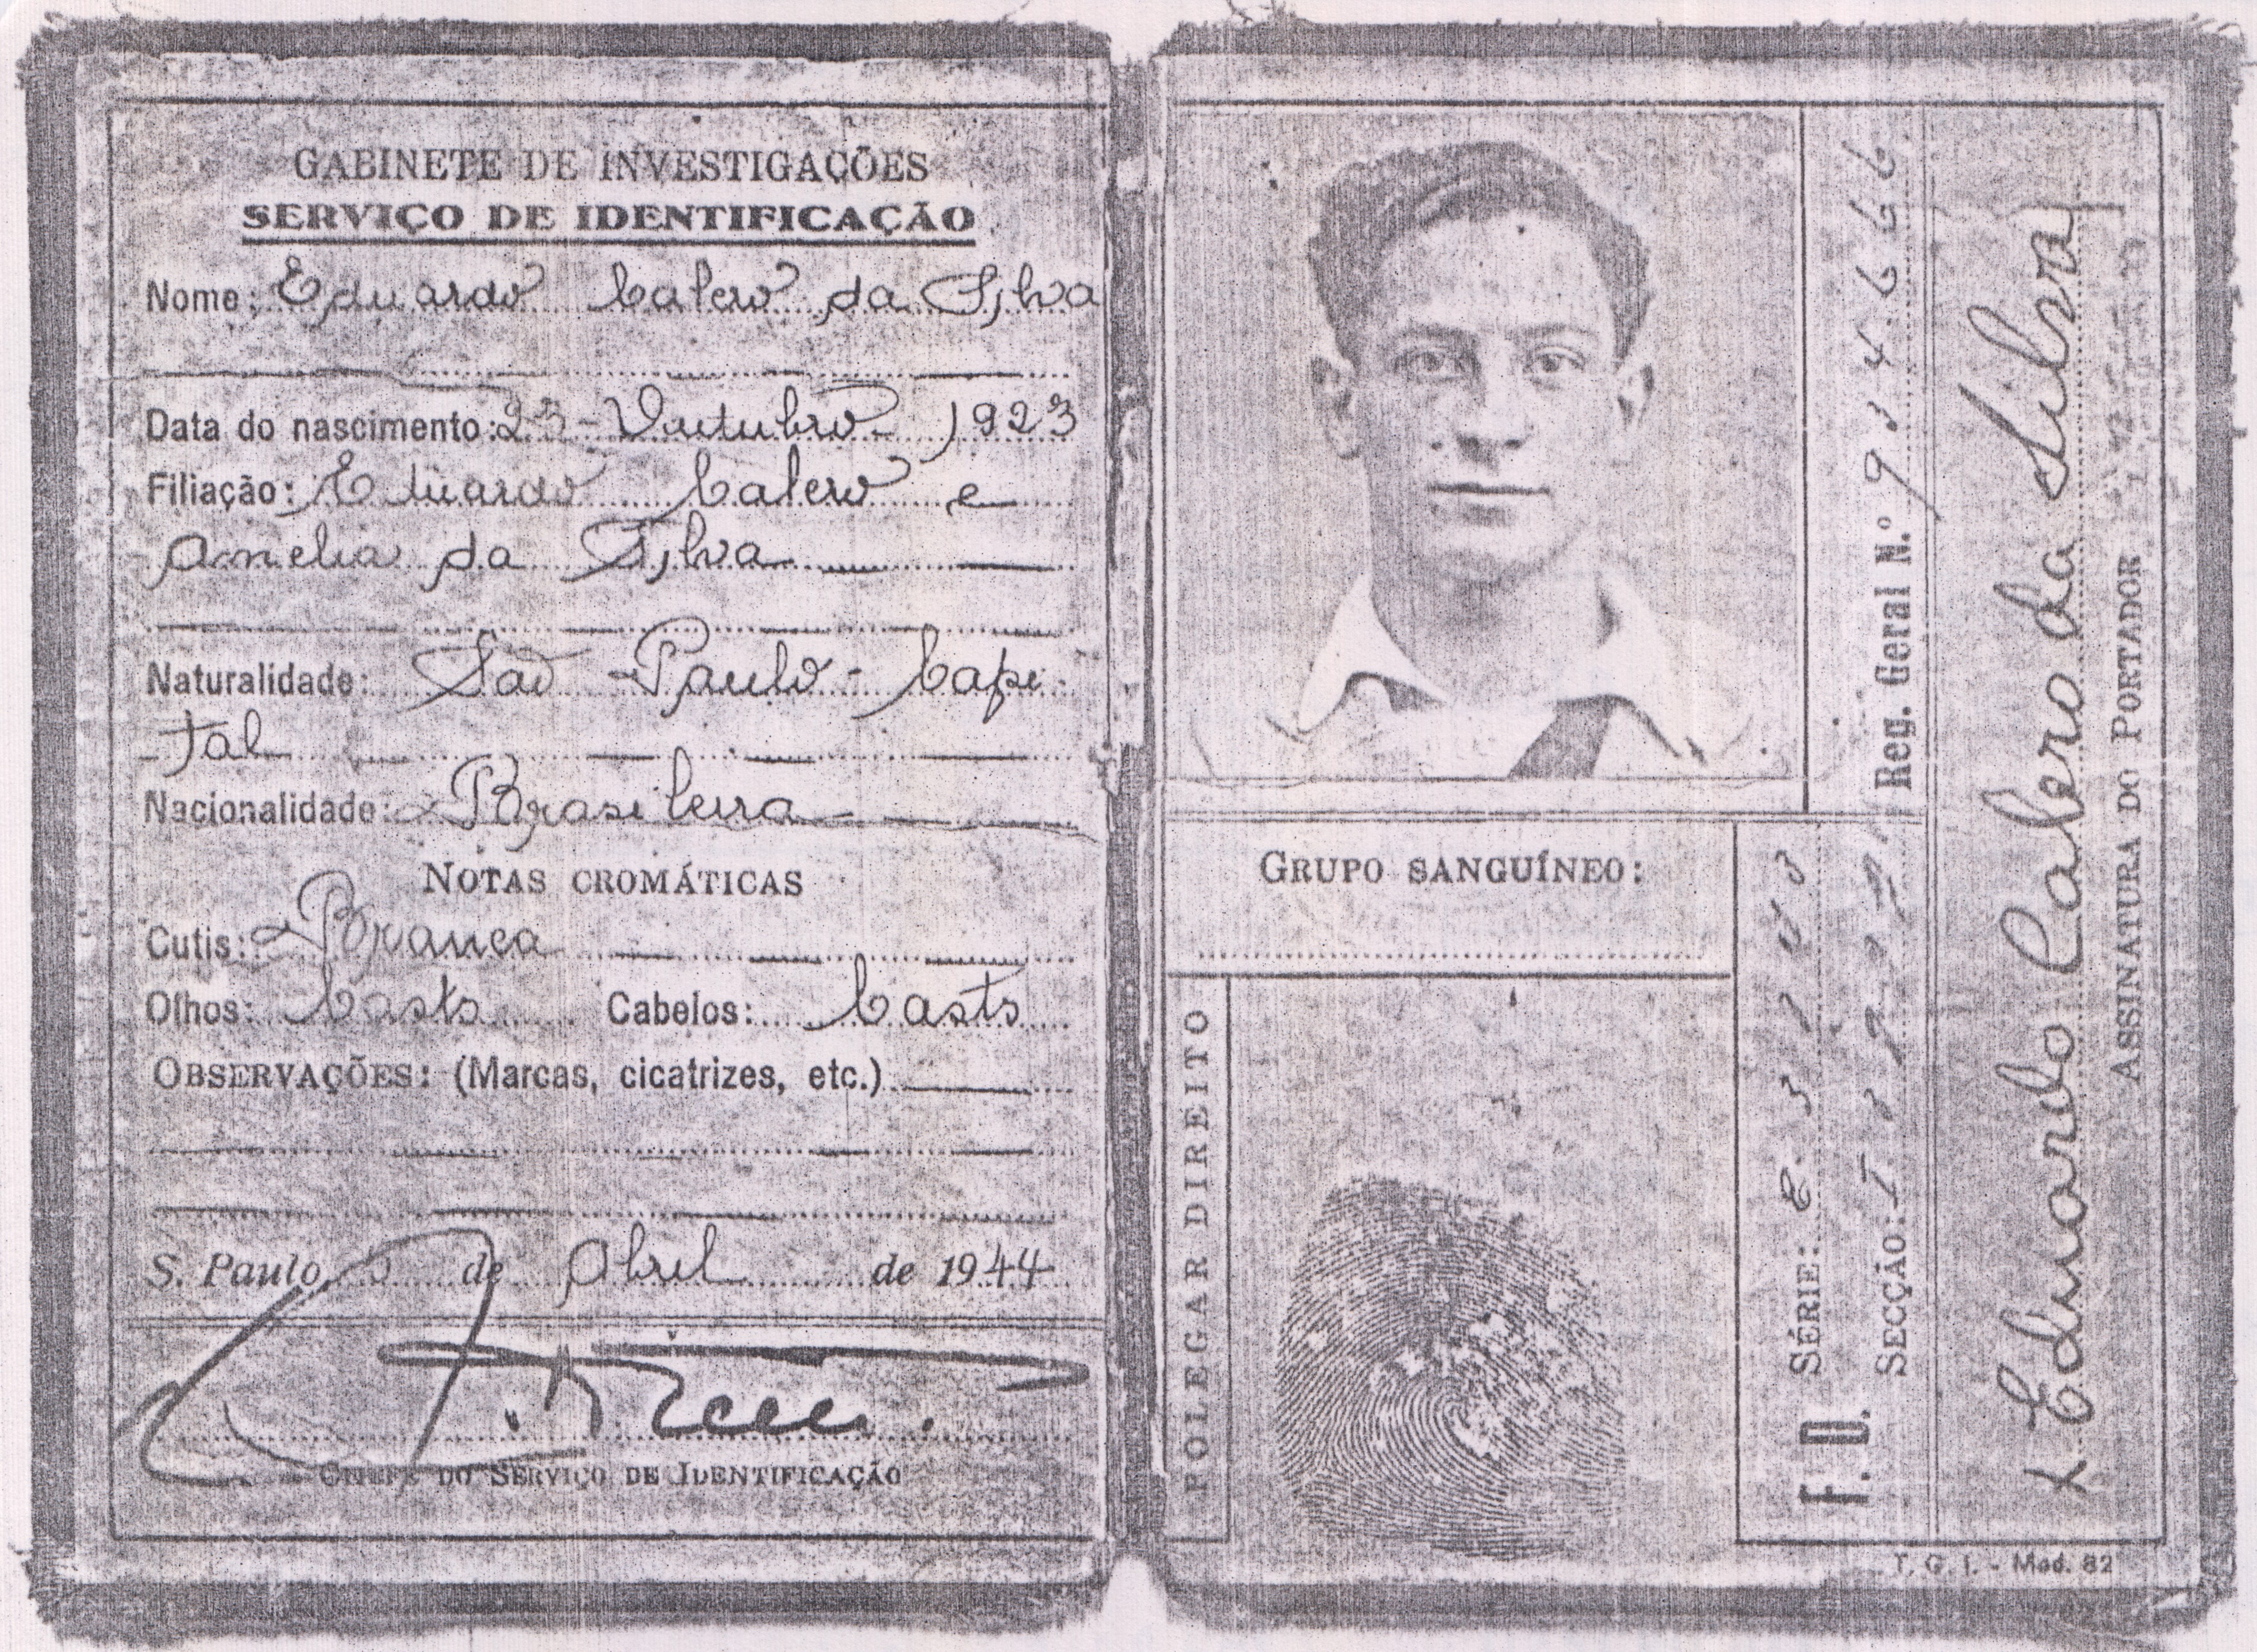 GABINETE DE INVESTIGAÇÕES
SERVIÇO DE IDENTIFICAÇÃO
Nome: Eduardo Calero da Silva
Data do nascimento: 23 - Outubro - 1923
Filiação: Eduardo Calero e
Amelia da Silva
Naturalidade: São - Paulo - Capi-
tal
Nacionalidade: Brasileira
NOTAS CROMÁTICAS
Cutis: Branca
Olhos: Casts Cabelos: Casts
OBSERVAÇÕES: (Marcas, cicatrizes, etc.)
S. Paulo, de Abril de 1944
CHEFE DO SERVIÇO DE IDENTIFICAÇÃO
Reg. Geral N.º
GRUPO SANGUÍNEO:
POLEGAR DIREITO
F. D.
SÉRIE:
SECÇÃO:
Eduardo Calero da Silva
ASSINATURA DO PORTADOR
T. G. I. - Mod. 82